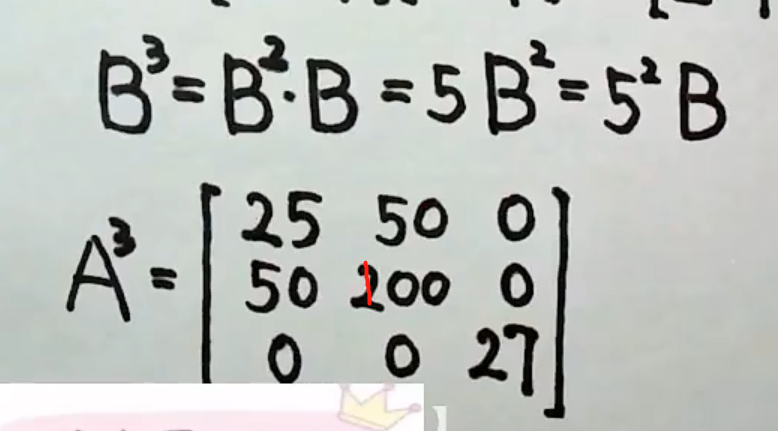 B³ = B²·B = 5B² = 5²B
A³ = [ 25 50 0
50 100 0
0 0 27 ]